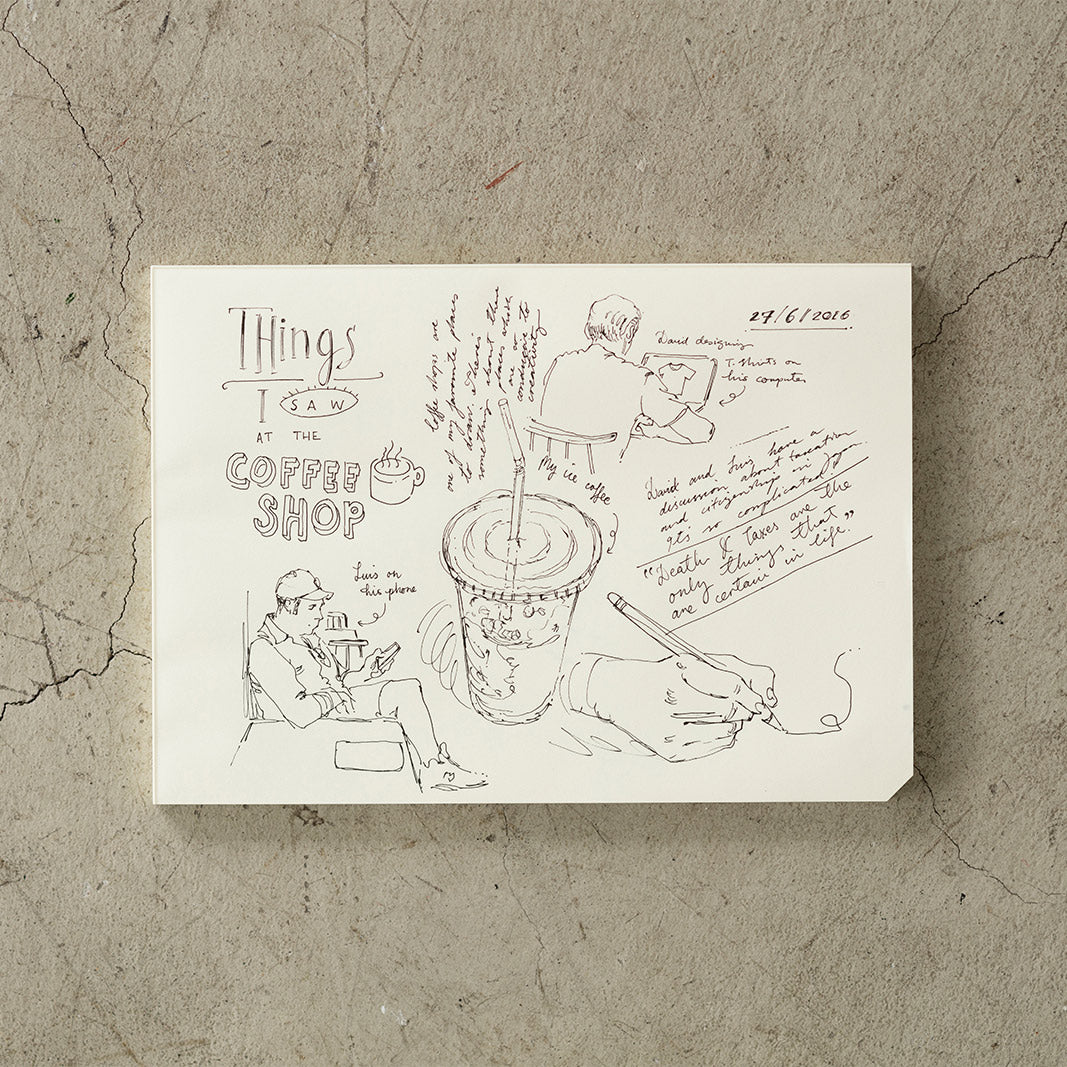 Things
I SAW
AT THE
COFFEE
SHOP
Coffee shops are
one of my favorite places
to draw. There's
something about these
places which
are so
conducive to
creativity
27/6/2016
David designing
T-shirts on
his computer
My ice coffee
David and Luis have a
discussion about taxation
and citizenship in Japan
gets so complicated
"Death & Taxes are the
only things that
are certain in life."
Luis on
his phone